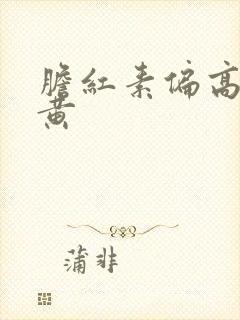 膽紅素偏高
黄
蒲非